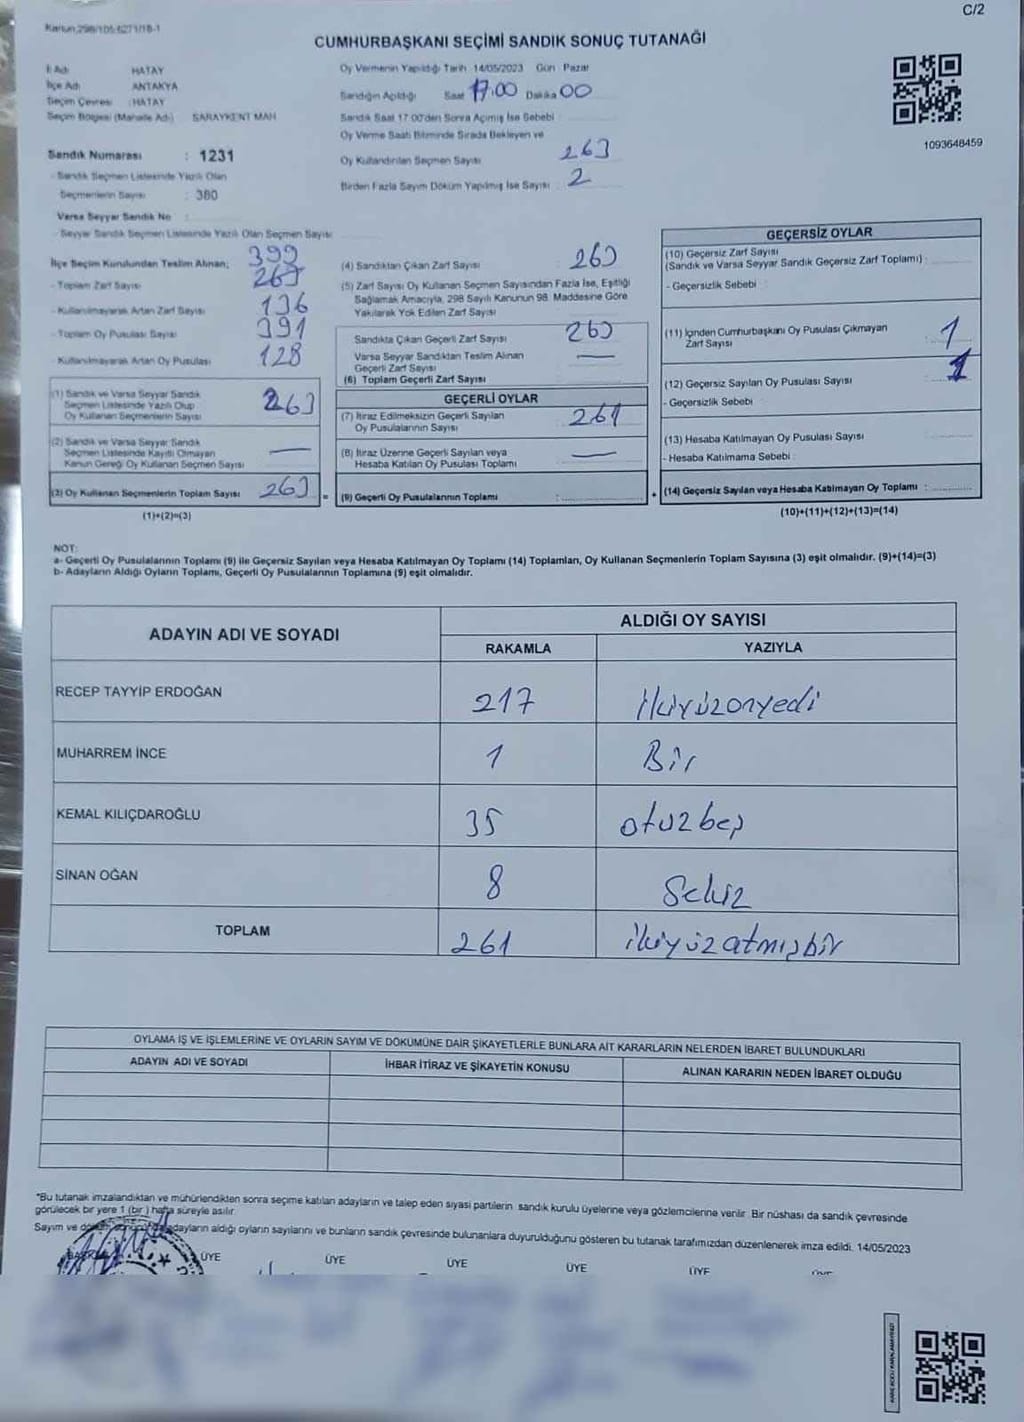 C/2
Kanun:298/105-6271/18-1
CUMHURBAŞKANI SEÇİMİ SANDIK SONUÇ TUTANAĞI
İl Adı HATAY
İlçe Adı ANTAKYA
Seçim Çevresi : HATAY
Seçim Bölgesi (Mahalle Adı) SARAYKENT MAH
Sandık Numarası : 1231
- Sandık Seçmen Listesinde Yazılı Olan
Seçmenlerin Sayısı : 380
Varsa Seyyar Sandık No :
- Seyyar Sandık Seçmen Listesinde Yazılı Olan Seçmen Sayısı
Oy Vermenin Yapıldığı Tarih 14/05/2023 Gün : Pazar
Sandığın Açıldığı Saat 17:00 Dakika 00
Sandık Saat 17:00'den Sonra Açılmış İse Sebebi :
Oy Verme Saati Bitiminde Sırada Bekleyen ve
Oy Kullandırılan Seçmen Sayısı 263
Birden Fazla Sayım Döküm Yapılmış İse Sayısı : 2
1093648459
İlçe Seçim Kurulundan Teslim Alınan; 399
- Toplam Zarf Sayısı 263
- Kullanılmayarak Artan Zarf Sayısı 136
- Toplam Oy Pusulası Sayısı 391
- Kullanılmayarak Artan Oy Pusulası 128
(1) Sandık ve Varsa Seyyar Sandık
Seçmen Listesinde Yazılı Olup
Oy Kullanan Seçmenlerin Sayısı 263
(2) Sandık ve Varsa Seyyar Sandık
Seçmen Listesinde Kayıtlı Olmayan
Kanun Gereği Oy Kullanan Seçmen Sayısı —
(3) Oy Kullanan Seçmenlerin Toplam Sayısı 263 =
(1)+(2)=(3)
(4) Sandıktan Çıkan Zarf Sayısı : 263
(5) Zarf Sayısı Oy Kullanan Seçmen Sayısından Fazla İse, Eşitliği
Sağlamak Amacıyla, 298 Sayılı Kanunun 98. Maddesine Göre
Yakılarak Yok Edilen Zarf Sayısı
Sandıkta Çıkan Geçerli Zarf Sayısı 263
Varsa Seyyar Sandıktan Teslim Alınan
Geçerli Zarf Sayısı —
(6) Toplam Geçerli Zarf Sayısı
GEÇERLİ OYLAR
(7) İtiraz Edilmeksizin Geçerli Sayılan
Oy Pusulalarının Sayısı 261
(8) İtiraz Üzerine Geçerli Sayılan veya
Hesaba Katılan Oy Pusulası Toplamı —
(9) Geçerli Oy Pusulalarının Toplamı : +
GEÇERSİZ OYLAR
(10) Geçersiz Zarf Sayısı
(Sandık ve Varsa Seyyar Sandık Geçersiz Zarf Toplamı) :
- Geçersizlik Sebebi :
(11) İçinden Cumhurbaşkanı Oy Pusulası Çıkmayan
Zarf Sayısı : 1
(12) Geçersiz Sayılan Oy Pusulası Sayısı : 1
- Geçersizlik Sebebi :
(13) Hesaba Katılmayan Oy Pusulası Sayısı :
- Hesaba Katılmama Sebebi :
(14) Geçersiz Sayılan veya Hesaba Katılmayan Oy Toplamı :
(10)+(11)+(12)+(13)=(14)
NOT:
a- Geçerli Oy Pusulalarının Toplamı (9) ile Geçersiz Sayılan veya Hesaba Katılmayan Oy Toplamı (14) Toplamları, Oy Kullanan Seçmenlerin Toplam Sayısına (3) eşit olmalıdır. (9)+(14)=(3)
b- Adayların Aldığı Oyların Toplamı, Geçerli Oy Pusulalarının Toplamına (9) eşit olmalıdır.
ADAYIN ADI VE SOYADI ALDIĞI OY SAYISI
RAKAMLA YAZIYLA
RECEP TAYYİP ERDOĞAN 217 ikiyüzonyedi
MUHARREM İNCE 1 Bir
KEMAL KILIÇDAROĞLU 35 otuzbeş
SİNAN OĞAN 8 Sekiz
TOPLAM 261 ikiyüzatmışbir
OYLAMA İŞ VE İŞLEMLERİNE VE OYLARIN SAYIM VE DÖKÜMÜNE DAİR ŞİKAYETLERLE BUNLARA AİT KARARLARIN NELERDEN İBARET BULUNDUKLARI
ADAYIN ADI VE SOYADI İHBAR İTİRAZ VE ŞİKAYETİN KONUSU ALINAN KARARIN NEDEN İBARET OLDUĞU
*Bu tutanak imzalandıktan ve mühürlendikten sonra seçime katılan adayların ve talep eden siyasi partilerin sandık kurulu üyelerine veya gözlemcilerine verilir. Bir nüshası da sandık çevresinde
görülecek bir yere 1 (bir) hafta süreyle asılır.
Sayım ve adayların aldığı oyların sayılarını ve bunların sandık çevresinde bulunanlara duyurulduğunu gösteren bu tutanak tarafımızdan düzenlenerek imza edildi. 14/05/2023
ÜYE ÜYE ÜYE ÜYE ÜYE